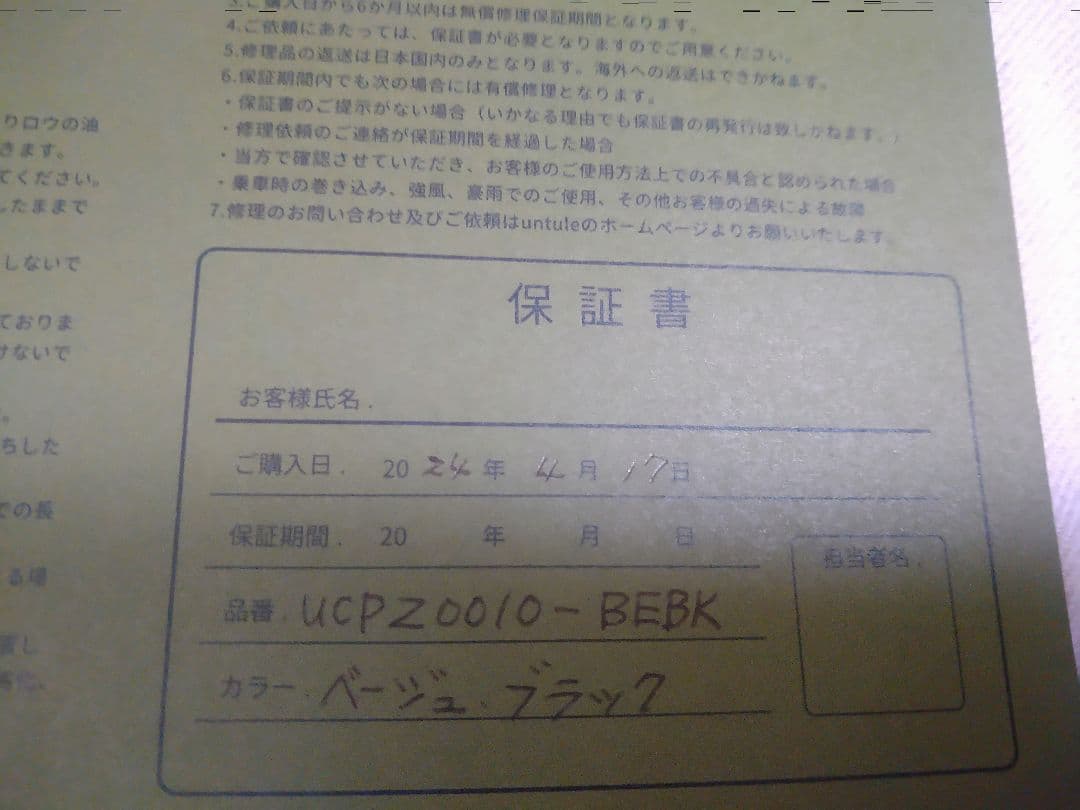 3.ご購入日から6か月以内は無償修理保証期間となります。
4.ご依頼にあたっては、保証書が必要となりますのでご用意ください。
5.修理品の返送は日本国内のみとなります。海外への返送はできかねます。
6.保証期間内でも次の場合には有償修理となります。
・保証書のご提示がない場合（いかなる理由でも保証書の再発行は致しかねます。）
・修理依頼のご連絡が保証期間を経過した場合
・当方で確認させていただき、お客様のご使用方法上での不具合と認められた場合
・乗車時の巻き込み、強風、豪雨でのご使用、その他お客様の過失による故障
7.修理のお問い合わせ及びご依頼はuntuleのホームページよりお願いいたします。
りロウの油
きます。
てください。
したままで
しないで
ておりま
けないで
ちした
での長
る場
保証書
お客様氏名.
ご購入日. 2024年 4月 17日
保証期間. 20 年 月 日
担当者名.
品番. UCPZ0010-BEBK
カラー. ベージュ.ブラック